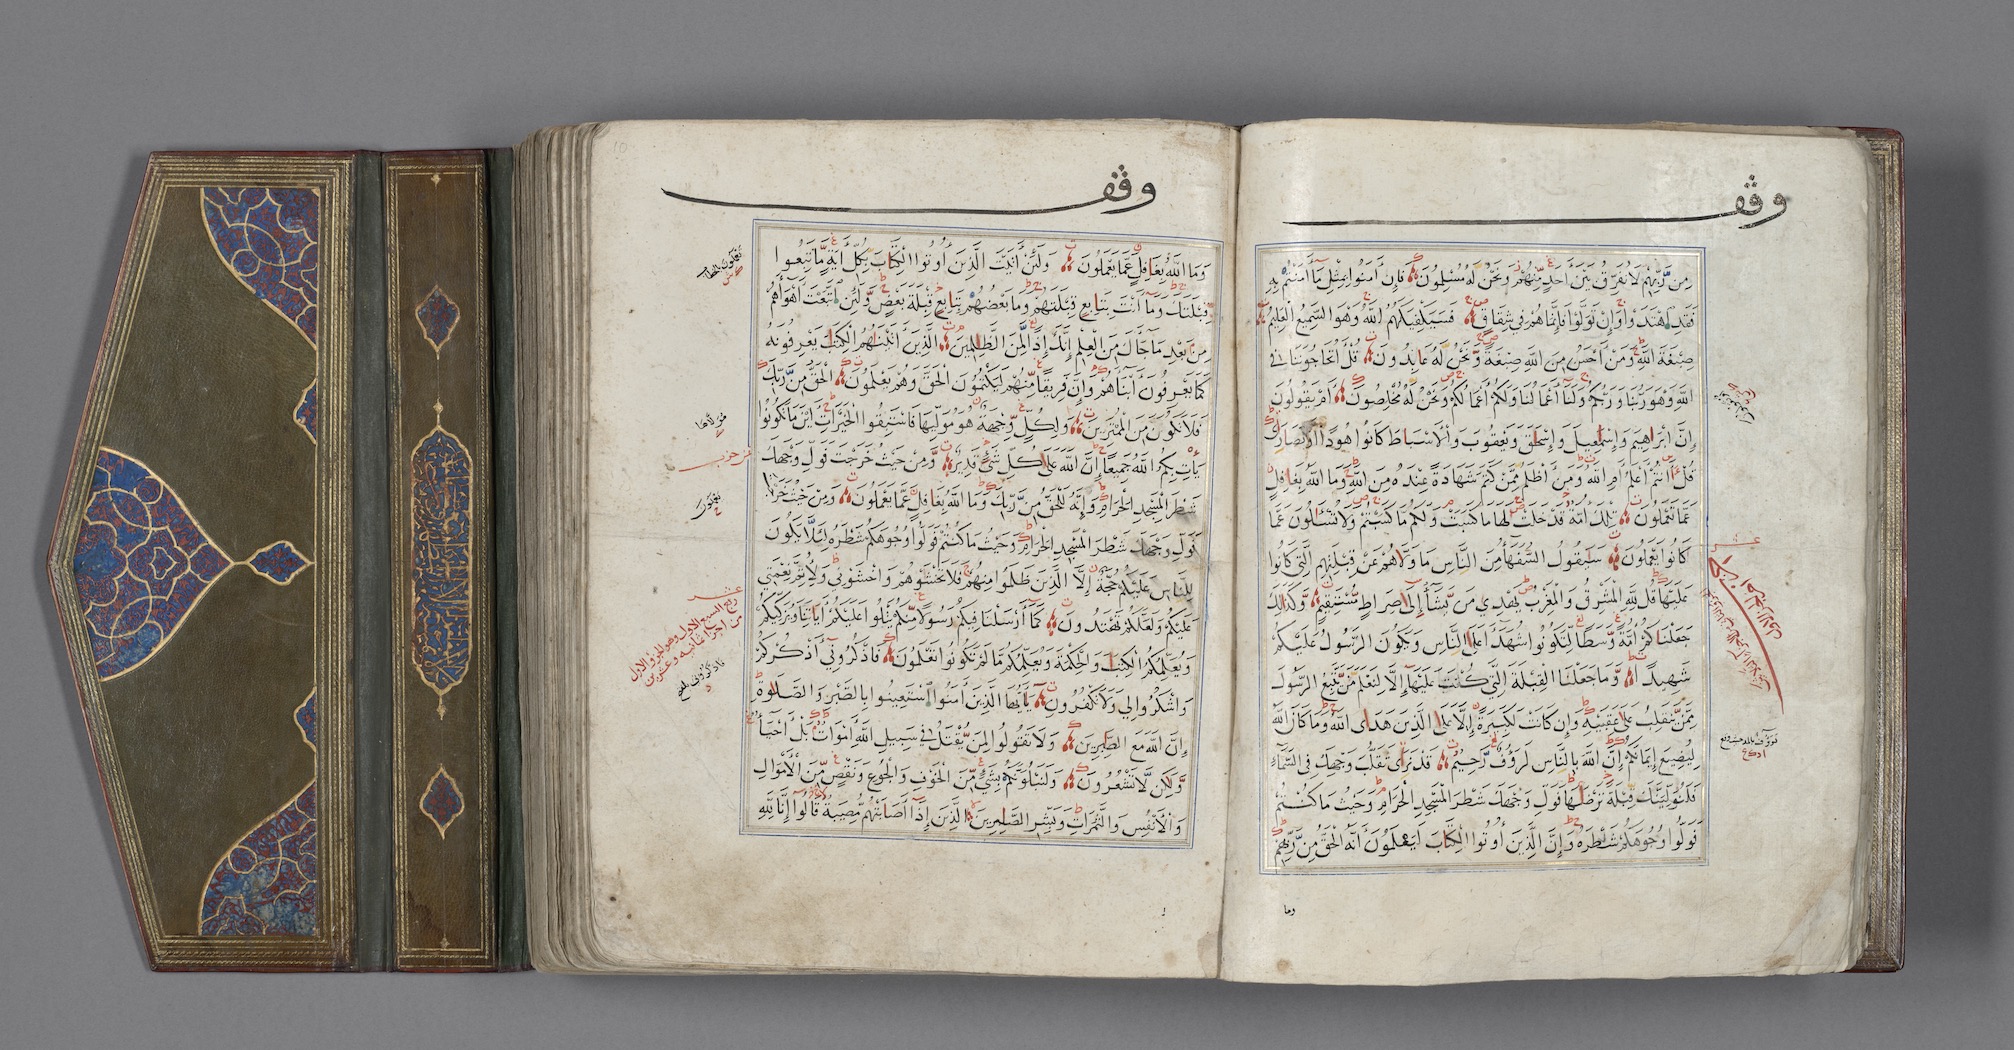 وقف
مِن رَّبِّهِمْ لَا نُفَرِّقُ بَيْنَ أَحَدٍ مِّنْهُمْ وَنَحْنُ لَهُ مُسْلِمُونَ فَإِنْ آمَنُوا بِمِثْلِ مَا آمَنْتُمْ بِهِ
فَقَدِ اهْتَدَوا وَإِنْ تَوَلَّوْا فَإِنَّمَا هُمْ فِي شِقَاقٍ فَسَيَكْفِيكَهُمُ اللَّهُ وَهُوَ السَّمِيعُ الْعَلِيمُ
صِبْغَةَ اللَّهِ وَمَنْ أَحْسَنُ مِنَ اللَّهِ صِبْغَةً وَنَحْنُ لَهُ عَابِدُونَ قُلْ أَتُحَاجُّونَنَا فِي
اللَّهِ وَهُوَ رَبُّنَا وَرَبُّكُمْ وَلَنَا أَعْمَالُنَا وَلَكُمْ أَعْمَالُكُمْ وَنَحْنُ لَهُ مُخْلِصُونَ أَمْ يَقُولُونَ
إِنَّ إِبْرَاهِيمَ وَإِسْمَاعِيلَ وَإِسْحَاقَ وَيَعْقُوبَ وَالْأَسْبَاطَ كَانُوا هُودًا أَوْ نَصَارَى
قُلْ أَأَنْتُمْ أَعْلَمُ أَمِ اللَّهُ وَمَنْ أَظْلَمُ مِمَّنْ كَتَمَ شَهَادَةً عِنْدَهُ مِنَ اللَّهِ وَمَا اللَّهُ بِغَافِلٍ
عَمَّا تَعْمَلُونَ تِلْكَ أُمَّةٌ قَدْ خَلَتْ لَهَا مَا كَسَبَتْ وَلَكُمْ مَا كَسَبْتُمْ وَلَا تُسْئَلُونَ عَمَّا
كَانُوا يَعْمَلُونَ سَيَقُولُ السُّفَهَاءُ مِنَ النَّاسِ مَا وَلَّاهُمْ عَنْ قِبْلَتِهِمُ الَّتِي كَانُوا
عَلَيْهَا قُلْ لِلَّهِ الْمَشْرِقُ وَالْمَغْرِبُ يَهْدِي مَن يَّشَاءُ إِلَى صِرَاطٍ مُّسْتَقِيمٍ وَكَذَلِكَ
جَعَلْنَاكُمْ أُمَّةً وَسَطًا لِتَكُونُوا شُهَدَاءَ عَلَى النَّاسِ وَيَكُونَ الرَّسُولُ عَلَيْكُمْ
شَهِيدًا وَمَا جَعَلْنَا الْقِبْلَةَ الَّتِي كُنْتَ عَلَيْهَا إِلَّا لِنَعْلَمَ مَنْ يَتَّبِعُ الرَّسُولَ
مِمَّنْ يَنْقَلِبُ عَلَى عَقِبَيْهِ وَإِنْ كَانَتْ لَكَبِيرَةً إِلَّا عَلَى الَّذِينَ هَدَى اللَّهُ وَمَا كَانَ اللَّهُ
لِيُضِيعَ إِيمَانَكُمْ إِنَّ اللَّهَ بِالنَّاسِ لَرَءُوفٌ رَّحِيمٌ قَدْ نَرَى تَقَلُّبَ وَجْهِكَ فِي السَّمَاءِ
فَلَنُوَلِّيَنَّكَ قِبْلَةً تَرْضَاهَا فَوَلِّ وَجْهَكَ شَطْرَ الْمَسْجِدِ الْحَرَامِ وَحَيْثُ مَا كُنْتُمْ
فَوَلُّوا وُجُوهَكُمْ شَطْرَهُ وَإِنَّ الَّذِينَ أُوتُوا الْكِتَابَ لَيَعْلَمُونَ أَنَّهُ الْحَقُّ مِنْ رَّبِّهِمْ
وما
وقف
وَمَا اللَّهُ بِغَافِلٍ عَمَّا يَعْمَلُونَ وَلَئِنْ أَتَيْتَ الَّذِينَ أُوتُوا الْكِتَابَ بِكُلِّ آيَةٍ مَّا تَبِعُوا
قِبْلَتَكَ وَمَا أَنْتَ بِتَابِعٍ قِبْلَتَهُمْ وَمَا بَعْضُهُمْ بِتَابِعٍ قِبْلَةَ بَعْضٍ وَلَئِنِ اتَّبَعْتَ أَهْوَاءَهُمْ
مِنْ بَعْدِ مَا جَاءَكَ مِنَ الْعِلْمِ إِنَّكَ إِذًا لَّمِنَ الظَّالِمِينَ الَّذِينَ آتَيْنَاهُمُ الْكِتَابَ يَعْرِفُونَهُ
كَمَا يَعْرِفُونَ أَبْنَاءَهُمْ وَإِنَّ فَرِيقًا مِّنْهُمْ لَيَكْتُمُونَ الْحَقَّ وَهُمْ يَعْلَمُونَ الْحَقُّ مِنْ رَّبِّكَ
فَلَا تَكُونَنَّ مِنَ الْمُمْتَرِينَ وَلِكُلٍّ وِجْهَةٌ هُوَ مُوَلِّيهَا فَاسْتَبِقُوا الْخَيْرَاتِ أَيْنَ مَا تَكُونُوا
يَأْتِ بِكُمُ اللَّهُ جَمِيعًا إِنَّ اللَّهَ عَلَى كُلِّ شَيْءٍ قَدِيرٌ وَمِنْ حَيْثُ خَرَجْتَ فَوَلِّ وَجْهَكَ
شَطْرَ الْمَسْجِدِ الْحَرَامِ وَإِنَّهُ لَلْحَقُّ مِنْ رَّبِّكَ وَمَا اللَّهُ بِغَافِلٍ عَمَّا يَعْمَلُونَ وَمِنْ حَيْثُ خَرَجْتَ
فَوَلِّ وَجْهَكَ شَطْرَ الْمَسْجِدِ الْحَرَامِ وَحَيْثُ مَا كُنْتُمْ فَوَلُّوا وُجُوهَكُمْ شَطْرَهُ لِئَلَّا يَكُونَ
لِلنَّاسِ عَلَيْكُمْ حُجَّةٌ إِلَّا الَّذِينَ ظَلَمُوا مِنْهُمْ فَلَا تَخْشَوْهُمْ وَاخْشَوْنِي وَلِأُتِمَّ نِعْمَتِي
عَلَيْكُمْ وَلَعَلَّكُمْ تَهْتَدُونَ كَمَا أَرْسَلْنَا فِيكُمْ رَسُولًا مِّنْكُمْ يَتْلُوا عَلَيْكُمْ آيَاتِنَا وَيُزَكِّيكُمْ
وَيُعَلِّمُكُمُ الْكِتَابَ وَالْحِكْمَةَ وَيُعَلِّمُكُمْ مَا لَمْ تَكُونُوا تَعْلَمُونَ فَاذْكُرُونِي أَذْكُرْكُمْ
وَاشْكُرُوا لِي وَلَا تَكْفُرُونِ يَا أَيُّهَا الَّذِينَ آمَنُوا اسْتَعِينُوا بِالصَّبْرِ وَالصَّلَوةِ
إِنَّ اللَّهَ مَعَ الصَّابِرِينَ وَلَا تَقُولُوا لِمَنْ يُّقْتَلُ فِي سَبِيلِ اللَّهِ أَمْوَاتٌ بَلْ أَحْيَاءٌ
وَّلَكِن لَّا تَشْعُرُونَ وَلَنَبْلُوَنَّكُمْ بِشَيْءٍ مِّنَ الْخَوْفِ وَالْجُوعِ وَنَقْصٍ مِّنَ الْأَمْوَالِ
وَالْأَنْفُسِ وَالثَّمَرَاتِ وَبَشِّرِ الصَّابِرِينَ الَّذِينَ إِذَا أَصَابَتْهُمْ مُّصِيبَةٌ قَالُوا إِنَّا لِلَّهِ
عشر
ربع السبع الاول وهو الجزو الاول
من اجزا ثمانيه وعشرين